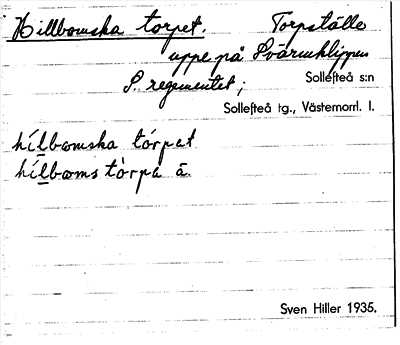 Hillbomska torpet. Torpställe
uppe på Svärmklippen
S. regementet; Sollefteå s:n
Sollefteå tg., Västernorrl. l.
hílbomska tórpet
hílboms tòrpa ā.
Sven Hiller 1935.